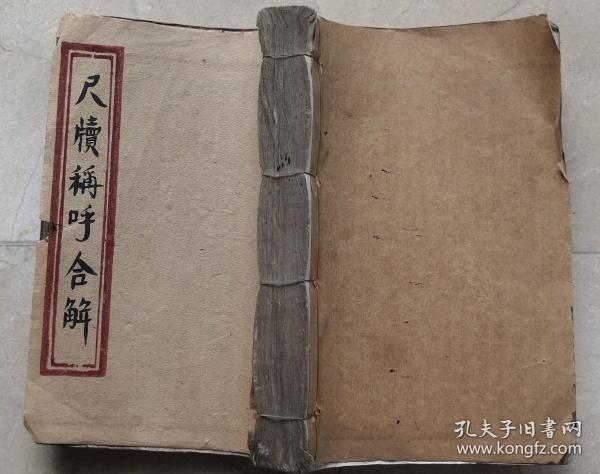 尺牘稱呼合解
孔夫子旧书网
www.kongfz.com